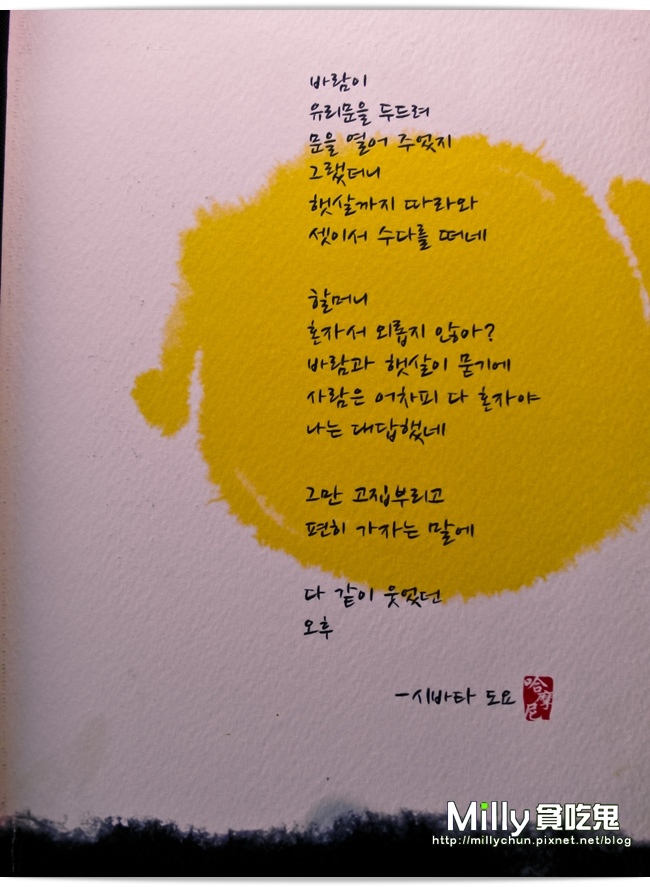 바람이
유리문을 두드려
문을 열어 주었지
그랬더니
햇살까지 따라와
셋이서 수다를 떠네
할머니
혼자서 외롭지 않아?
바람과 햇살이 묻기에
사람은 어차피 다 혼자야
나는 대답했네
그만 고집부리고
편히 가자는 말에
다 같이 웃었던
오후
-시바타 도요
哈摩尼
Milly 貪吃鬼
http://millychun.pixnet.net/blog